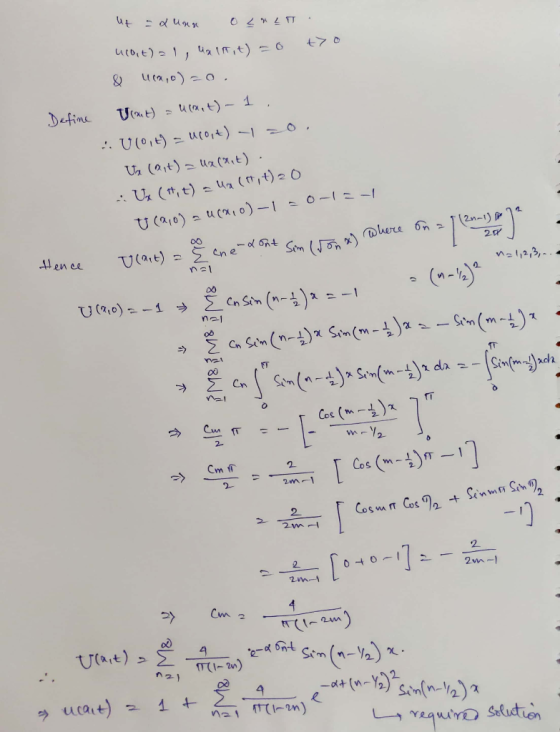 ut = αuxx 0 ≤ x ≤ π.
u(0,t) = 1, ux(π,t) = 0 t>0
& u(x,0) = 0.
Define U(x,t) = u(x,t) - 1.
∴ U(0,t) = u(0,t) - 1 = 0.
Ux(x,t) = ux(x,t).
∴ Ux(π,t) = ux(π,t) = 0
U(x,0) = u(x,0) - 1 = 0 - 1 = -1
Hence U(x,t) = ∞∑n=1 cn e^-ασnt Sin(√σn x) Where σn = [(2n-1)π/2π]^2 n=1,2,3,...
= (n-1/2)^2
U(x,0) = -1 ⇒ ∞∑n=1 cn Sin(n-1/2)x = -1
⇒ ∞∑n=1 cn Sin(n-1/2)x Sin(m-1/2)x = - Sin(m-1/2)x
⇒ ∞∑n=1 cn ∫0^π Sin(n-1/2)x Sin(m-1/2)x dx = -∫0^π Sin(m-1/2)x dx
⇒ cm/2 π = -[- Cos(m-1/2)x / m-1/2]0^π
⇒ cmπ/2 = 2/2m-1 [Cos(m-1/2)π - 1]
= 2/2m-1 [Cosmπ Cosπ/2 + Sinmπ Sinπ/2 - 1]
= 2/2m-1 [0+0-1] = - 2/2m-1
⇒ cm = 4/π(1-2m)
∴ U(x,t) = ∞∑n=1 4/π(1-2n) e^-ασnt Sin(n-1/2)x.
⇒ u(x,t) = 1 + ∞∑n=1 4/π(1-2n) e^-αt(n-1/2)^2 Sin(n-1/2)x
↳ required solution